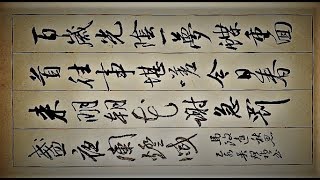 百歲光陰一夢蝶重回
首往事堪嗟今日春
来明朝花謝急罰
盞夜闌燈滅
馬致遠秋思